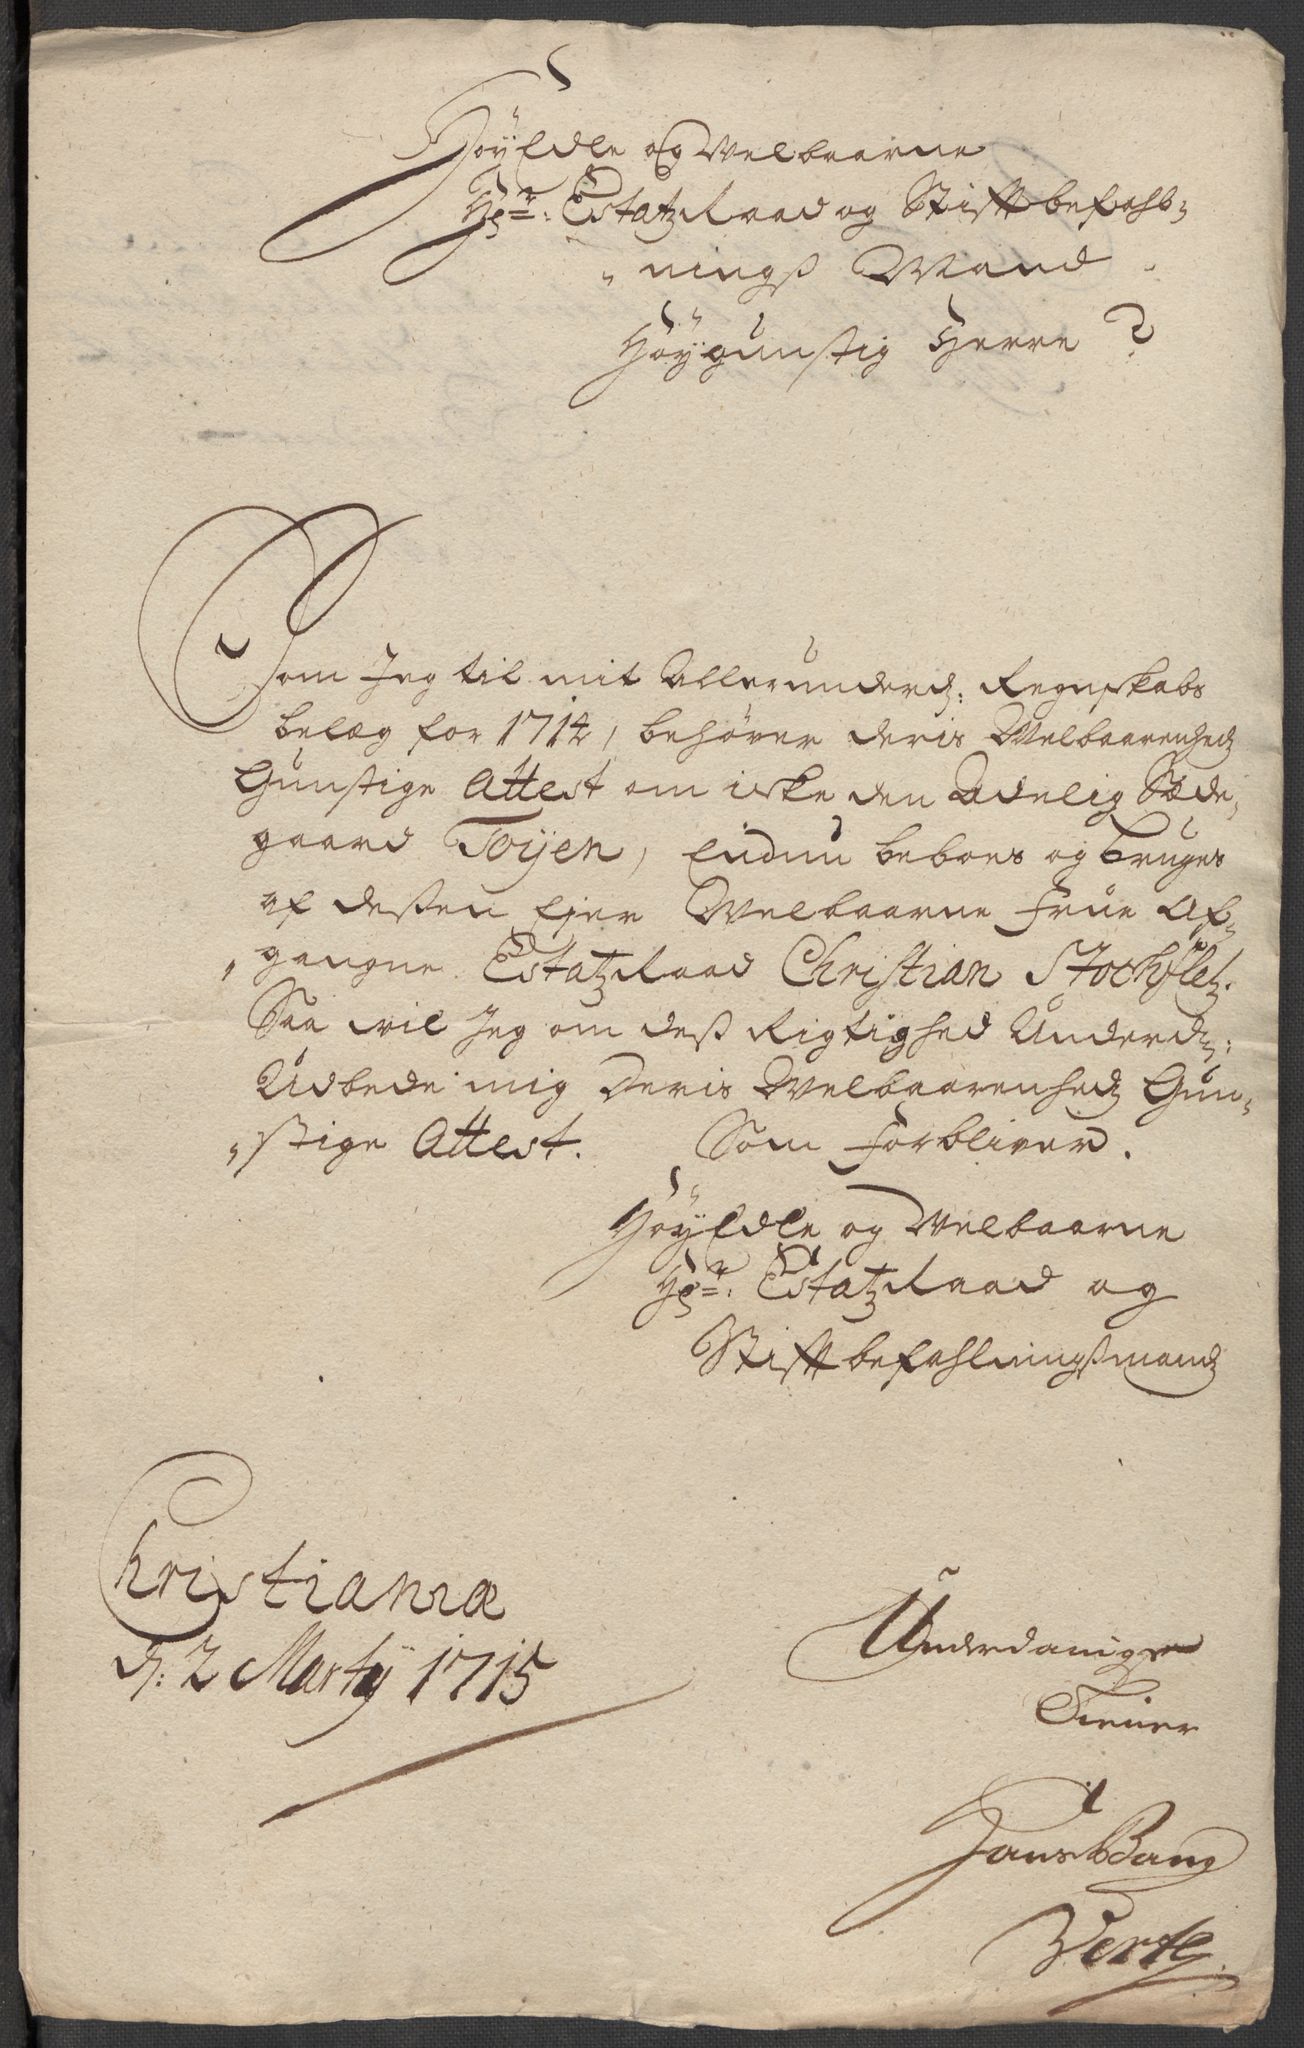 HöyEdle og Welbaarne
Hr: EstatzRaad og Stiftbefahl-
ningß Mand
Höÿgunstig Herre ?
Som Jeg til mit Allerunderd: Regnskabs
belæg for 1714, behøver deris Welbaarenhedz
Gunstige Attest om icke den Adelig Sæde-
gaard Toÿen, Endnu beboes og bruges
af dessen Ejer Welbaarne Frue Af-
gangne EstatzRaad Christian Stochfletz.
Saa wil Jeg om deß Rigtighed Underd:
Udbede mig Deris Welbaarenhedz Gun-
stige Attest. Som Forbliver.
HöyEdle og Welbaarne
Hr: EstatzRaad og
Stiftbefahlningßmandz
Christiania
d: 2 Martÿ 1715
Underdanige
Tiener
Hans Bang
Vertz